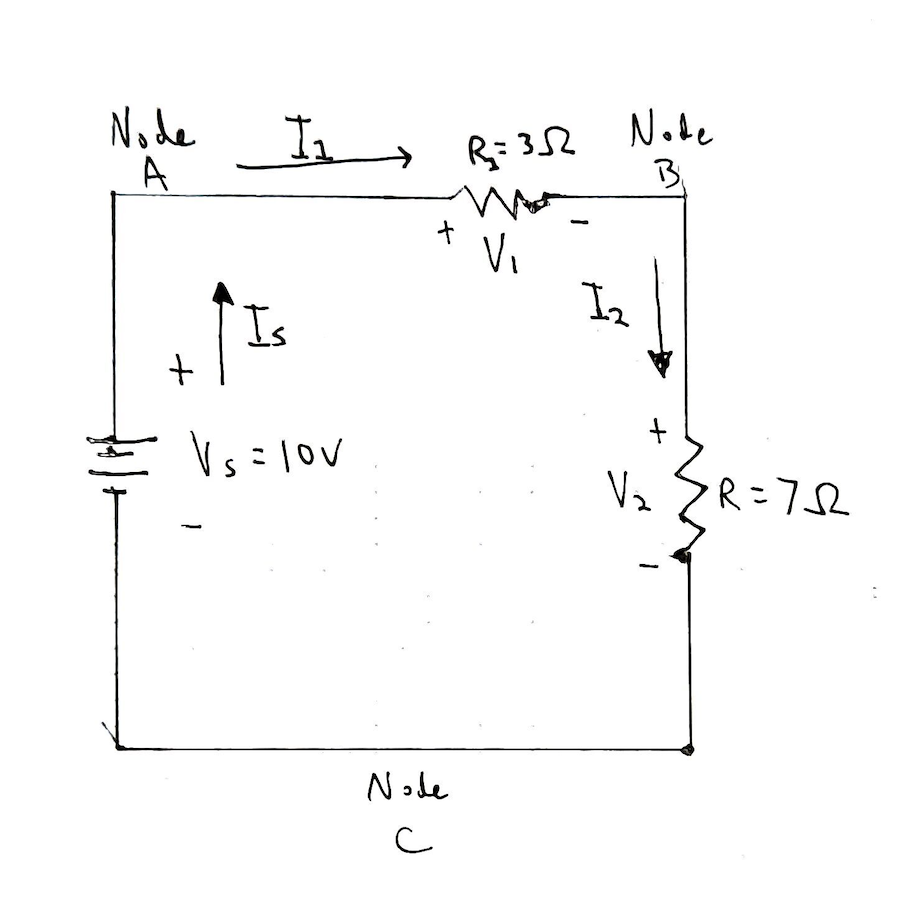 Node
A
I1
R1=3Ω
Node
B
+
-
V1
I2
Is
+
Vs=10V
-
+
V2
R=7Ω
-
Node
C